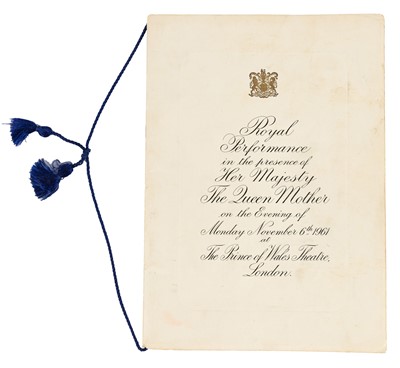 Royal
Performance
in the presence of
Her Majesty
The Queen Mother
on the Evening of
Monday November 6th 1961
at
The Prince of Wales Theatre,
London.